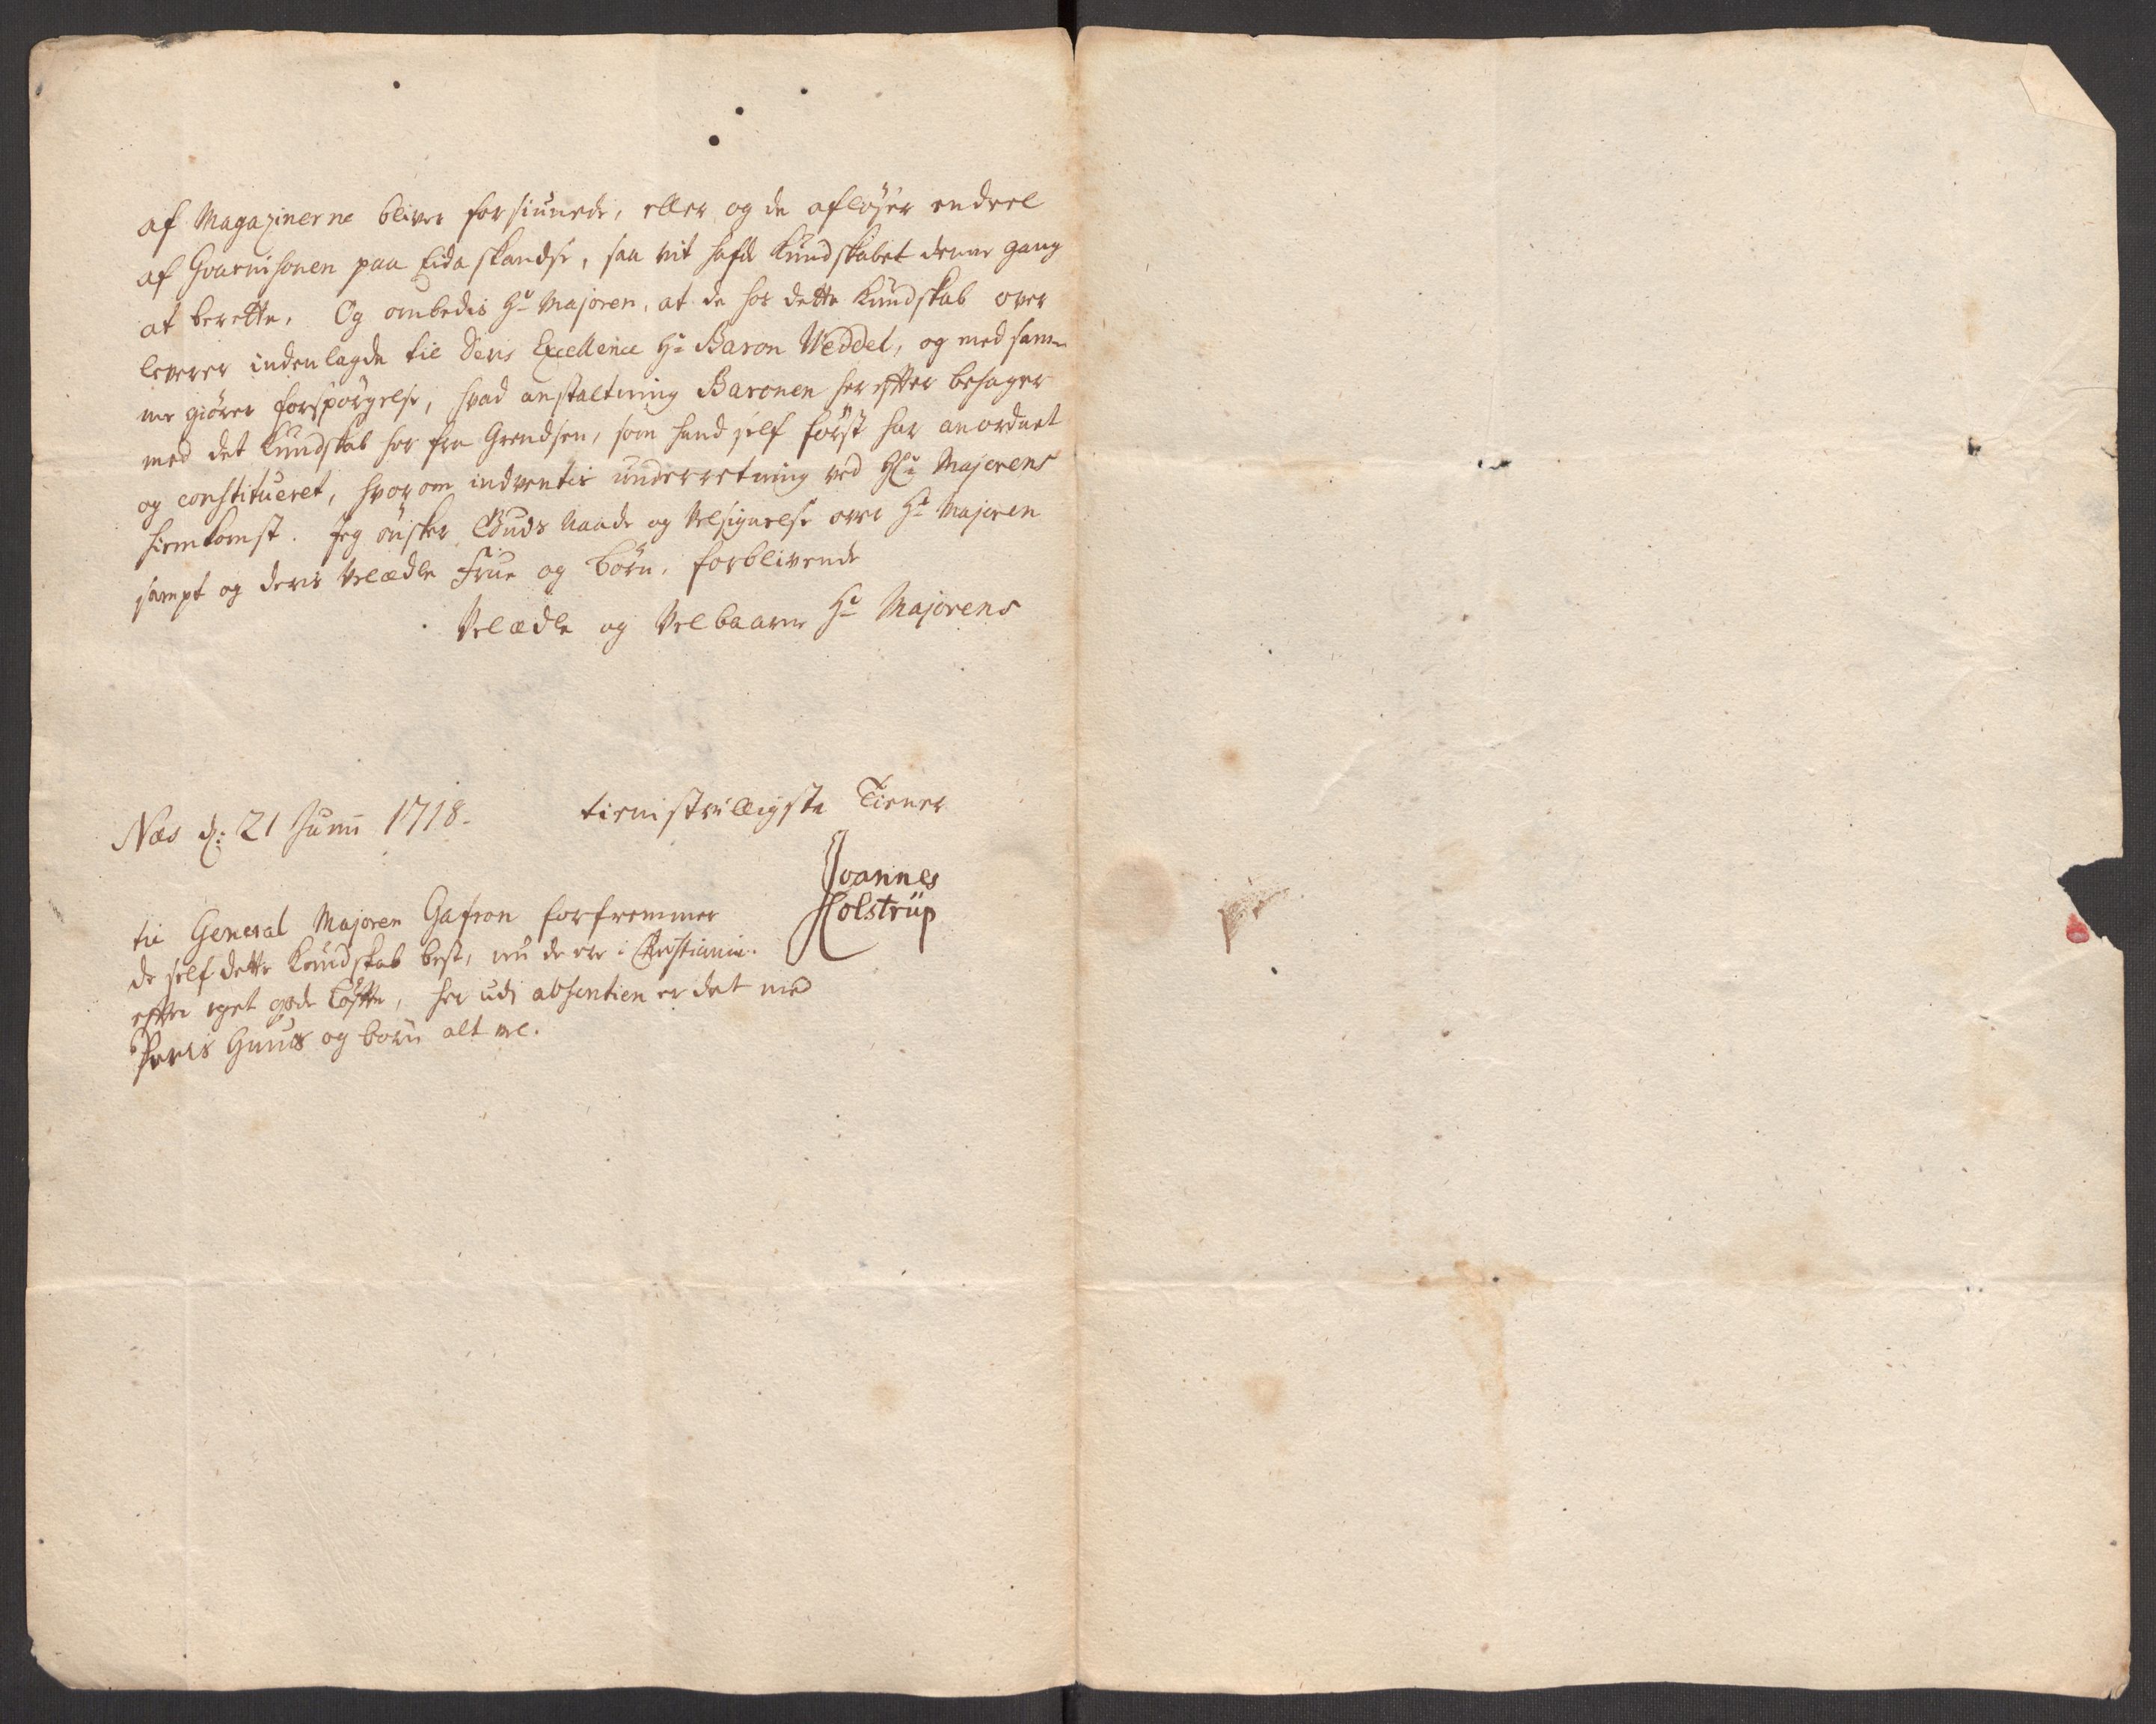 af Magazinerne bliver forsiunede, eller og de afløser endeel
af Gvarnisonen paa Eida skandse, saa vit hafde Kundskabet denne gang
at berette. Og ombedis Hr Majoren, at de for dette Kundskab over
leverer indenlagde til Deris Excellence Hr Baron Weddel, og med sam-
me giører forspørgelse, hvad anstaltning Baronen her effter behager
med det Kundskab her fra Grendsen, som hand self først har anordnet
og constitueret, hvorom indventis underretning ved Hr Majorens
hiemkomst. Jeg ønsker Guds Naade og Velsignelse over Hr Majoren
sampt og deris Velædle Frue og børn, forblivende
Velædle og Velbaarne Hr Majorens
Næs d: 21 Junii 1718.
tienistvilligste Tiener
Joannes
Holstrup
til General Majoren Gafron forfremmer
de self dette Kundskab best, nu de ere i Christiania.
effter eget gode løffte, her udi absentien er det med
Deris Huus og børn alt vel.